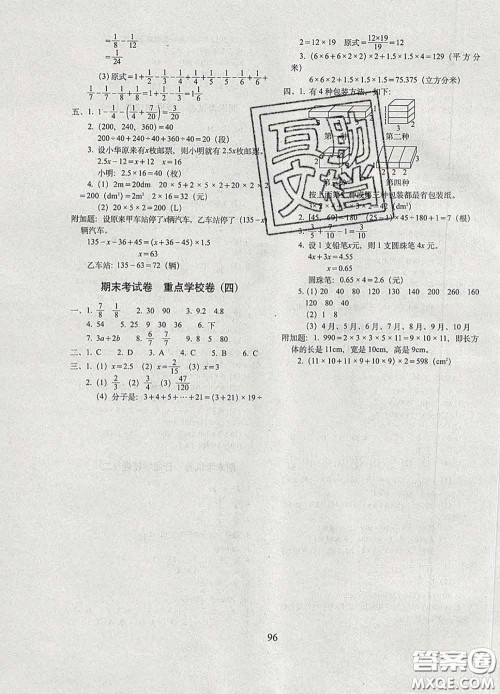 = 1/8 - 1/24
= 1/12
(3) 原式=1+1/2-1/2+1/3-1/3+1/4-1/4+1/5-1/5+1/6
-1/6=1
五、1. 1-1/4-(1/4+7/20)=3/20
2. (200, 240, 360)=40
200÷40+240÷40+360÷40=20(段)
3. 设小华原来有x枚邮票,则小明就有2.5x枚邮票。
2.5x-12=x x=
小明:2.5x=
4. (1) 2m=20dm 20×5+2×5×2+20×2×
=200(dm²)
(2) 20×5×2=200(L)
附加题:设原来甲车站停了x辆汽车,乙车站停了(135-x)
辆汽车。
135-x-36+45=(x+36-45)×1.5
x=63
乙车站:135-63=72(辆)
期末考试卷 重点学校卷(四)
一、1. 7/8 1/8 2. 24 3. 30 9.2 4.8
4. 54 5. 15 6. 90
7. 3a+2b 8. 6/7 5/7 9. 135 140
二、1. C 2. D 3. A 4. B 5. C 6. C
三、1. (1) x=2.5 (2) x=2/15 (3) x=3
2. (1) 7/8 (2) 3/4 (3) 47/120
(4) 分子是:3+4+5+⋯+21=(3+21)×19÷
2=12×19 原式=12×19/19=12
3. (6×6+2×2)×2+1.5×1.5×4=129(平方分
米)
6×6×2+1.5×1.5×1.5=75.375(立方分米)
四、1. 有4种包装方法,如下:
第二种
第四种
包装都最省包装纸。
2. [45, 60]=180 +180÷1=(根)
3. 1
4. 设1支铅笔x元,则1支圆珠笔4x元。
4x+3x=4.55
x=0.65
圆珠笔:0.65×4=2.6(元)
5. (1) 20 120 140 160 200 120 80 160
120 160
(2) 略
(3) 4月、1月、5月、3月、2月
附加题:1. 990=2×3×3×5×11=9×10×11,即长方
体的长是11cm,宽是10cm,高是9cm。
2. (11×10+11×9+10×9)×2=598(cm²)
互助
文档
96
答案圈
MXQE.COM